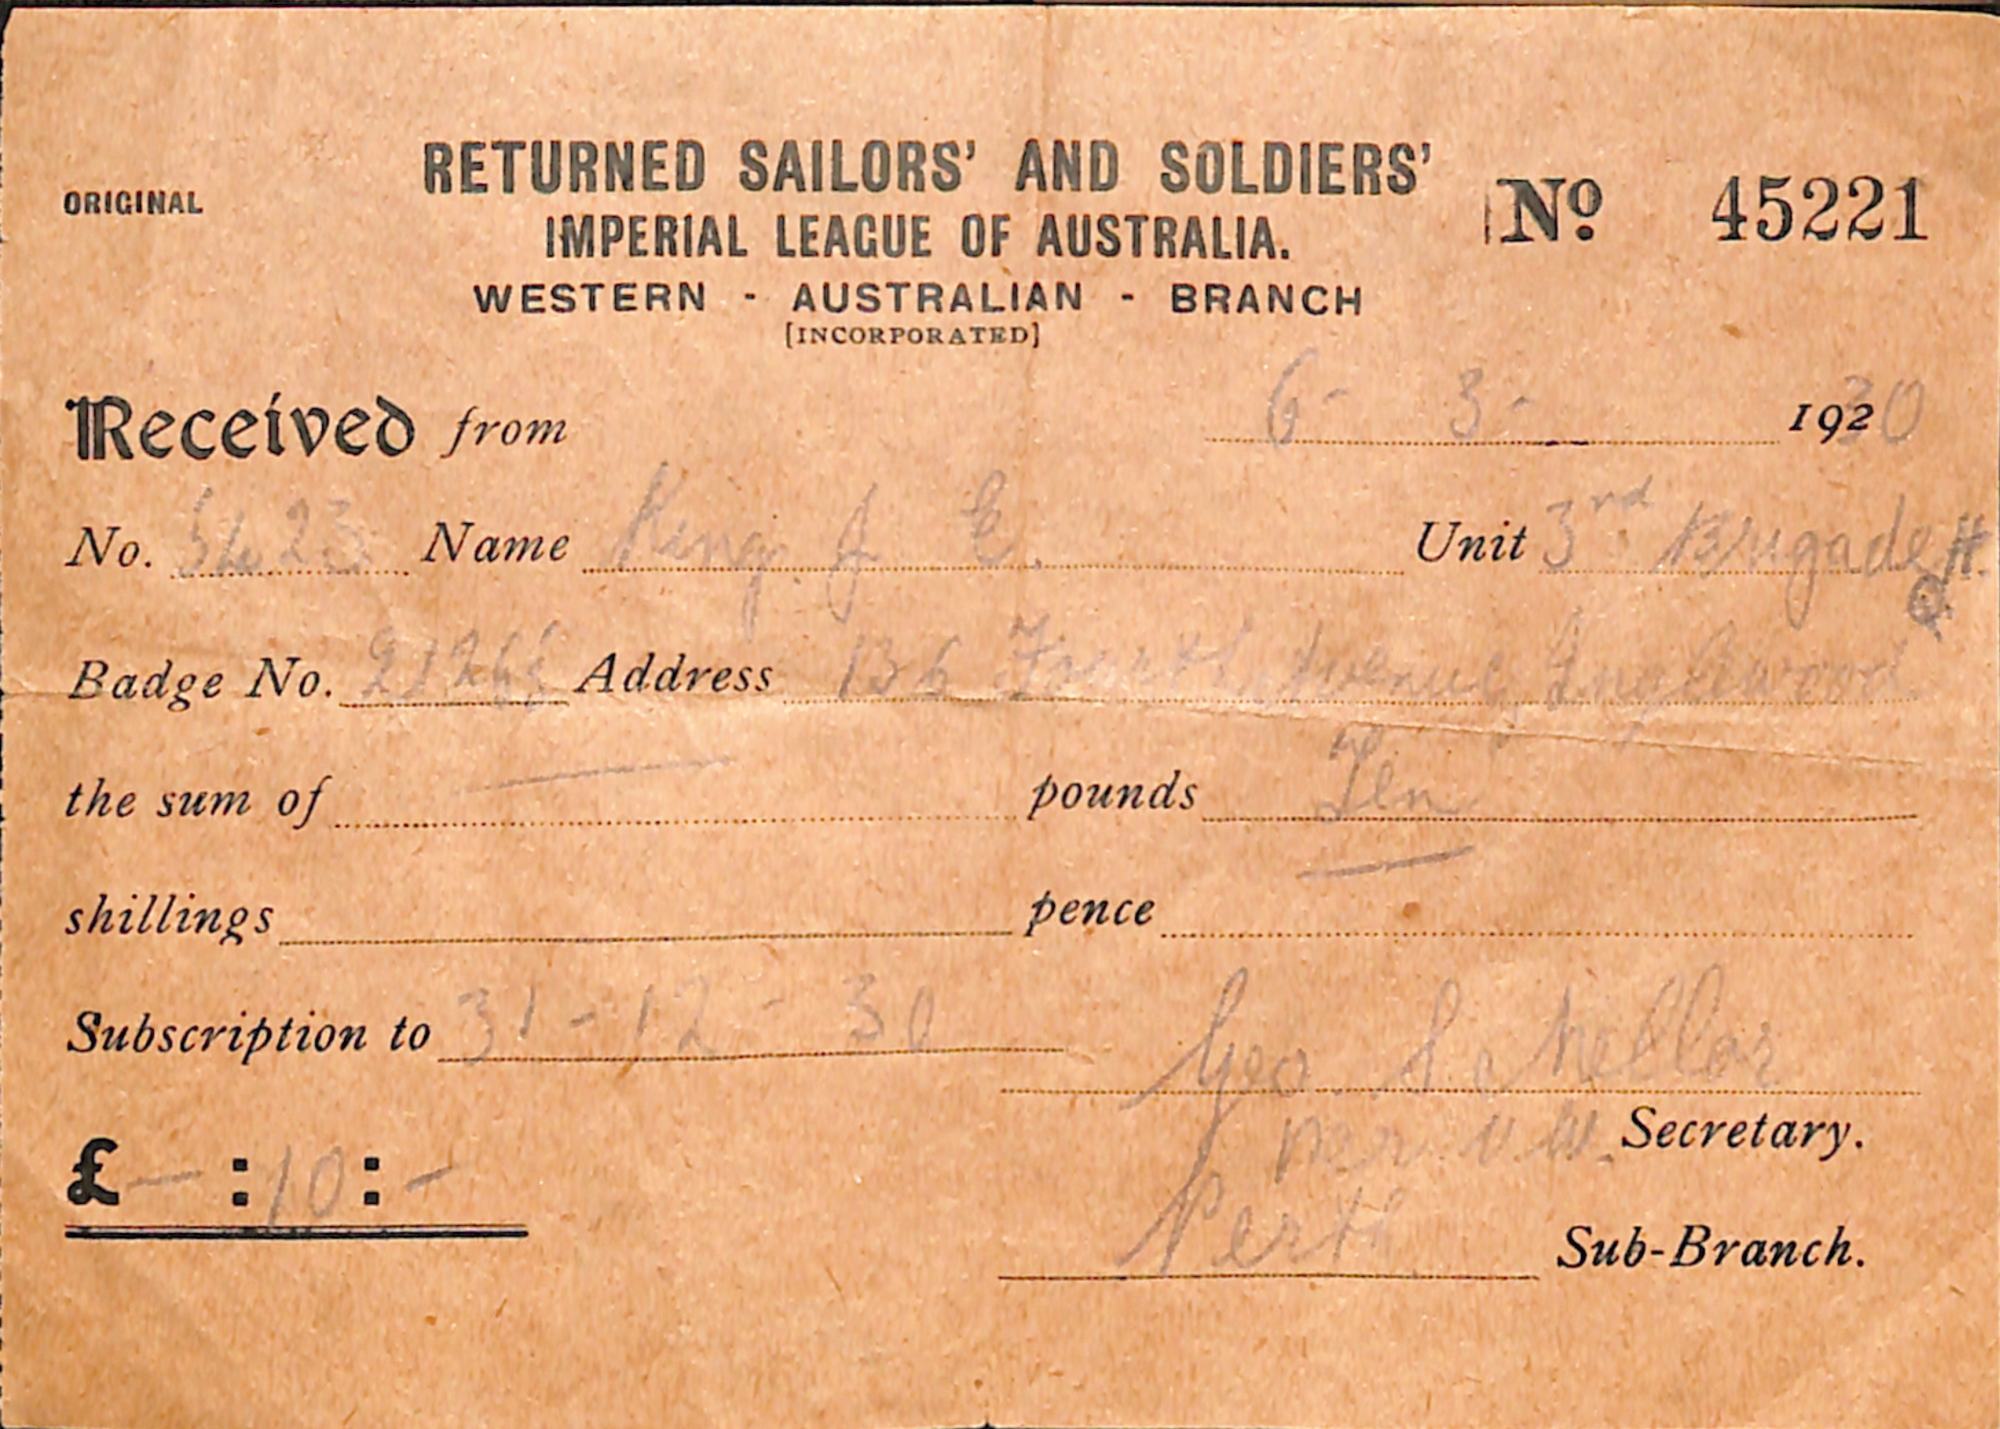 ORIGINAL
RETURNED SAILORS' AND SOLDIERS'
IMPERIAL LEAGUE OF AUSTRALIA.
WESTERN - AUSTRALIAN - BRANCH
[INCORPORATED]
No. 45221
Received from 6 - 3 - 1930
No. Name King. J E. Unit 3rd Brigade H.
Q.
Badge No. Address 136 Fourth Avenue, Inglewood
the sum of — pounds Ten
shillings — pence
Subscription to 31 - 12 - 30
Geo
per Secretary.
£ - : 10 : -
Perth Sub-Branch.